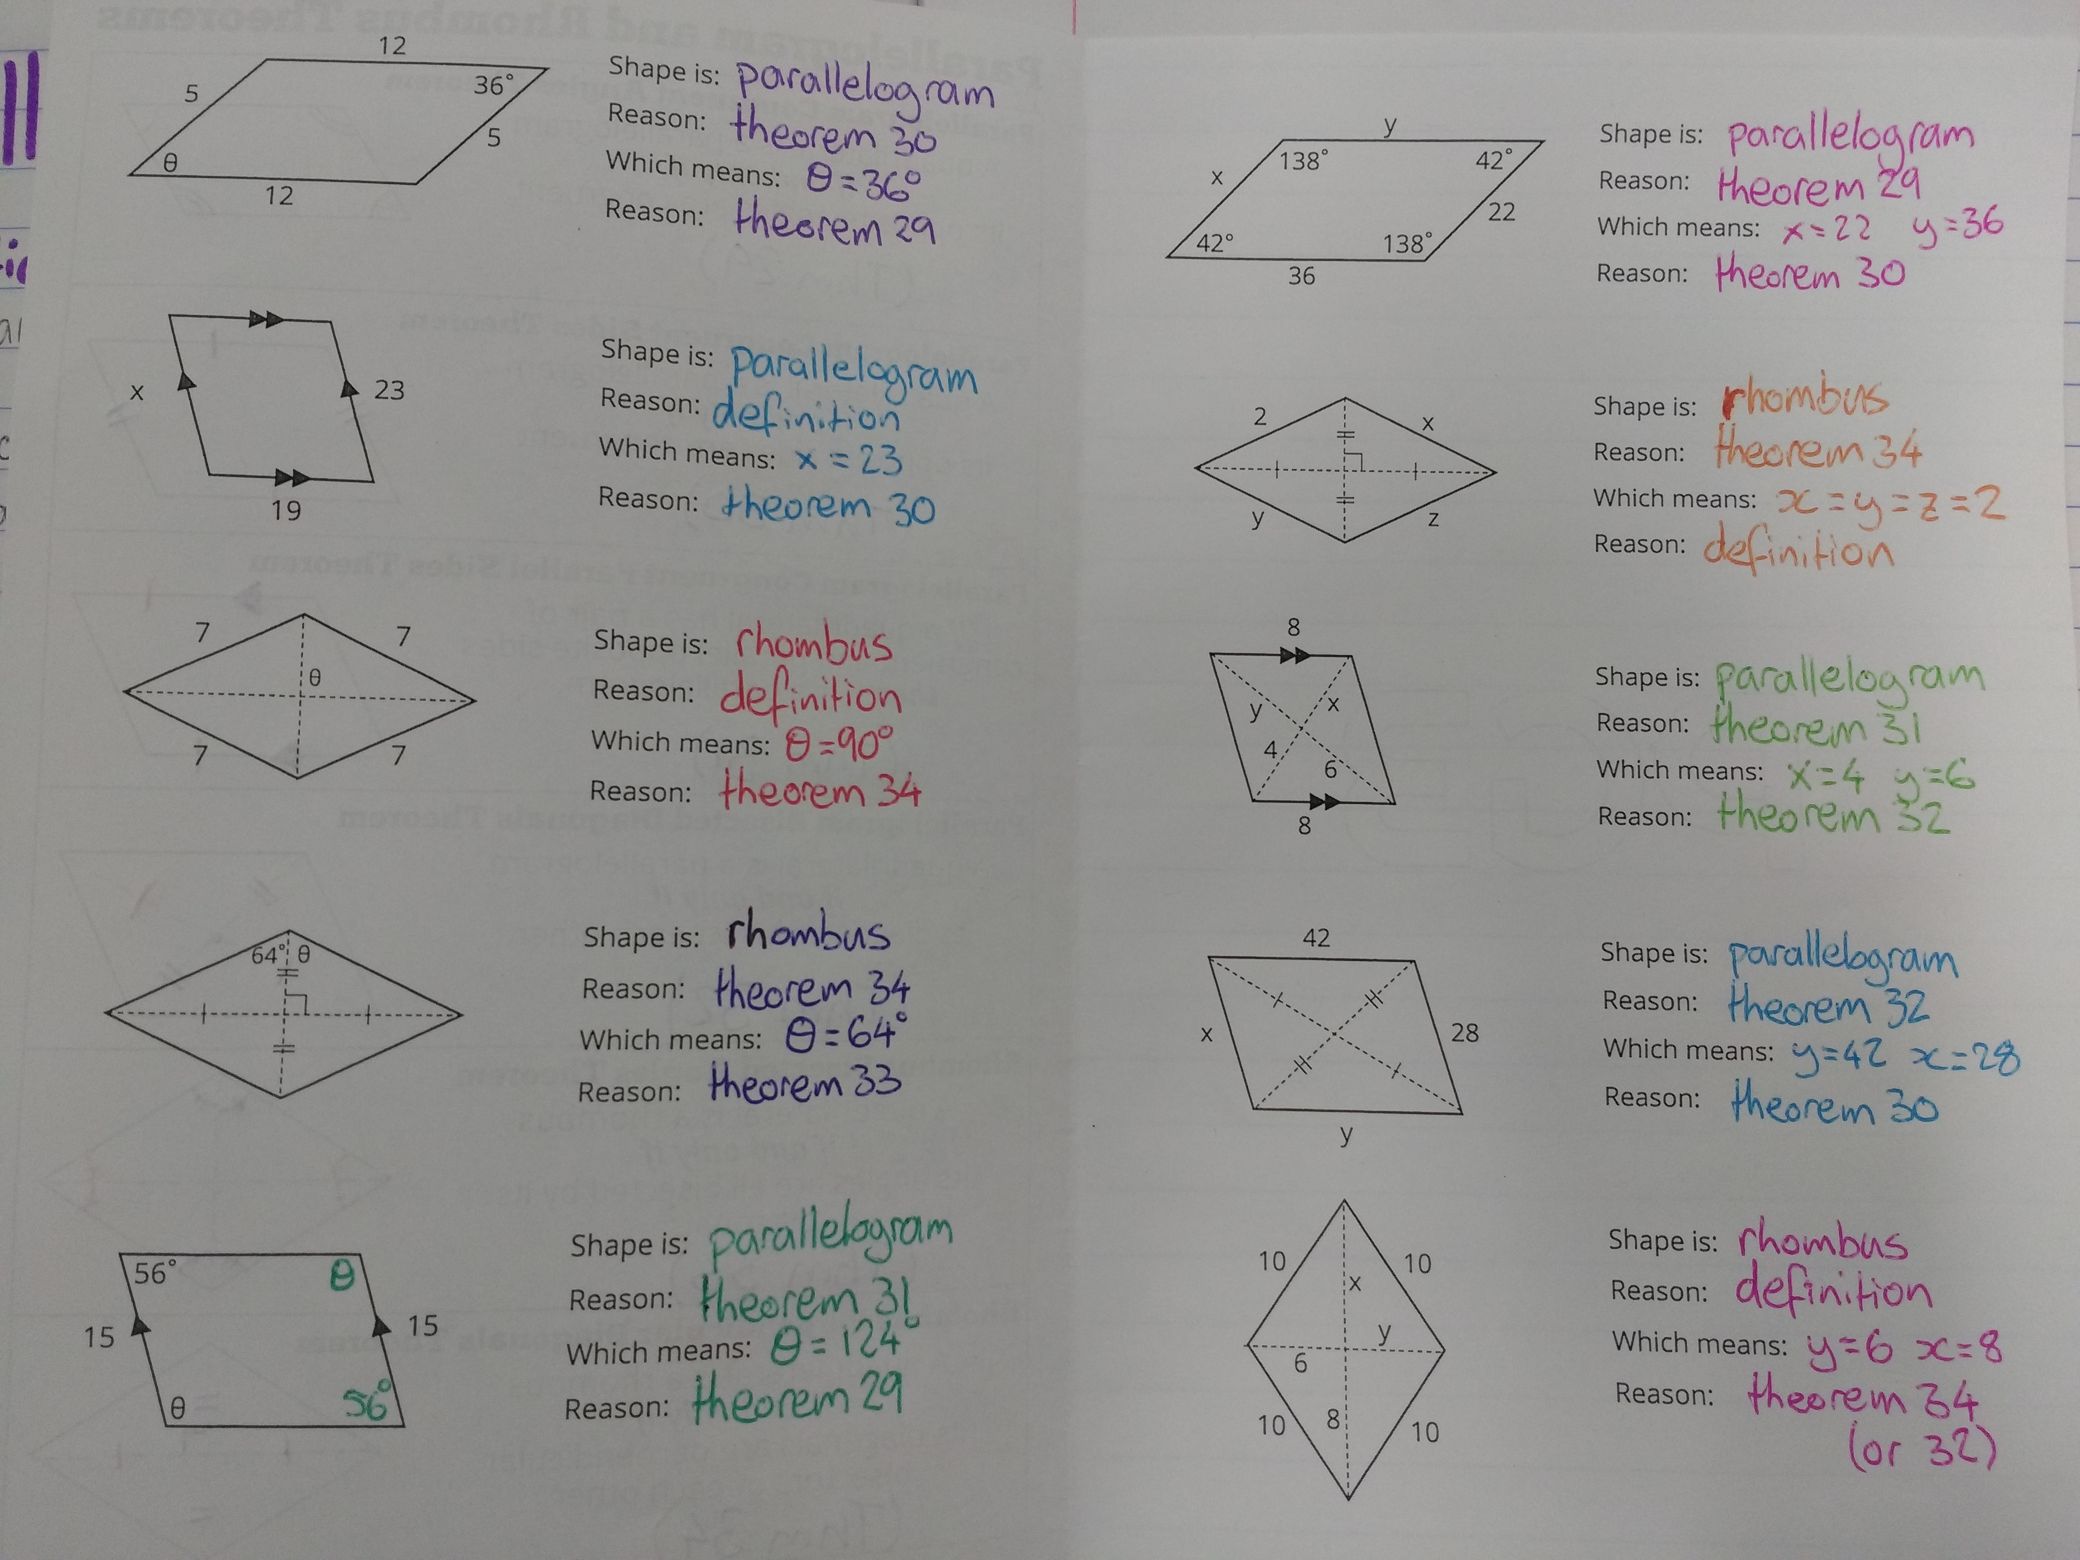 12
5
36°
5
θ
12
Shape is: parallelogram
Reason: theorem 30
Which means: θ = 36°
Reason: theorem 29
x
23
19
Shape is: parallelogram
Reason: definition
Which means: x = 23
Reason: theorem 30
7
7
θ
7
7
Shape is: rhombus
Reason: definition
Which means: θ = 90°
Reason: theorem 34
64° θ
Shape is: rhombus
Reason: theorem 34
Which means: θ = 64°
Reason: theorem 33
56°
θ
15
15
θ
56°
Shape is: parallelogram
Reason: theorem 31
Which means: θ = 124°
Reason: theorem 29
y
138°
42°
x
22
42°
138°
36
Shape is: parallelogram
Reason: theorem 29
Which means: x = 22 y = 36
Reason: theorem 30
2
x
y
z
Shape is: rhombus
Reason: theorem 34
Which means: x = y = z = 2
Reason: definition
8
y
x
4
6
8
Shape is: parallelogram
Reason: theorem 31
Which means: x = 4 y = 6
Reason: theorem 32
42
x
28
y
Shape is: parallelogram
Reason: theorem 32
Which means: y = 42 x = 28
Reason: theorem 30
10
10
x
y
6
8
10
10
Shape is: rhombus
Reason: definition
Which means: y = 6 x = 8
Reason: theorem 34
(or 32)